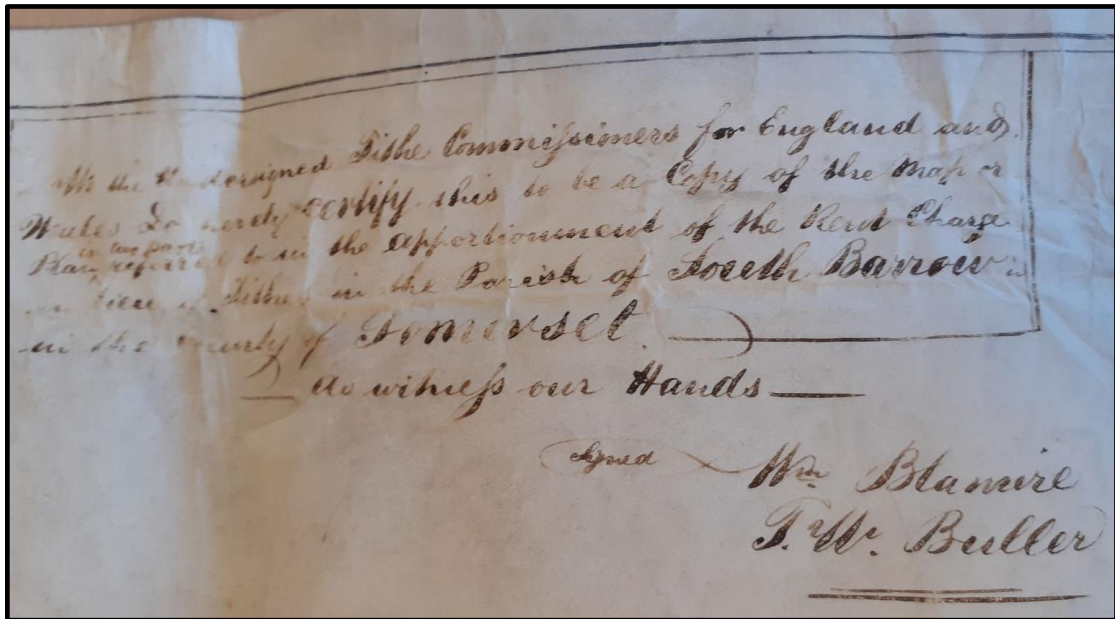 We the Undersigned Tithe Commissioners for England and
Wales Do hereby certify this to be a Copy of the Map or
in two parts
Plan referred to in the Apportionment of the Rent Charge
in lieu of Tithes in the Parish of South Barrow
in the County of Somerset.
As witness our Hands
Signed Wm Blamire
T. W. Buller